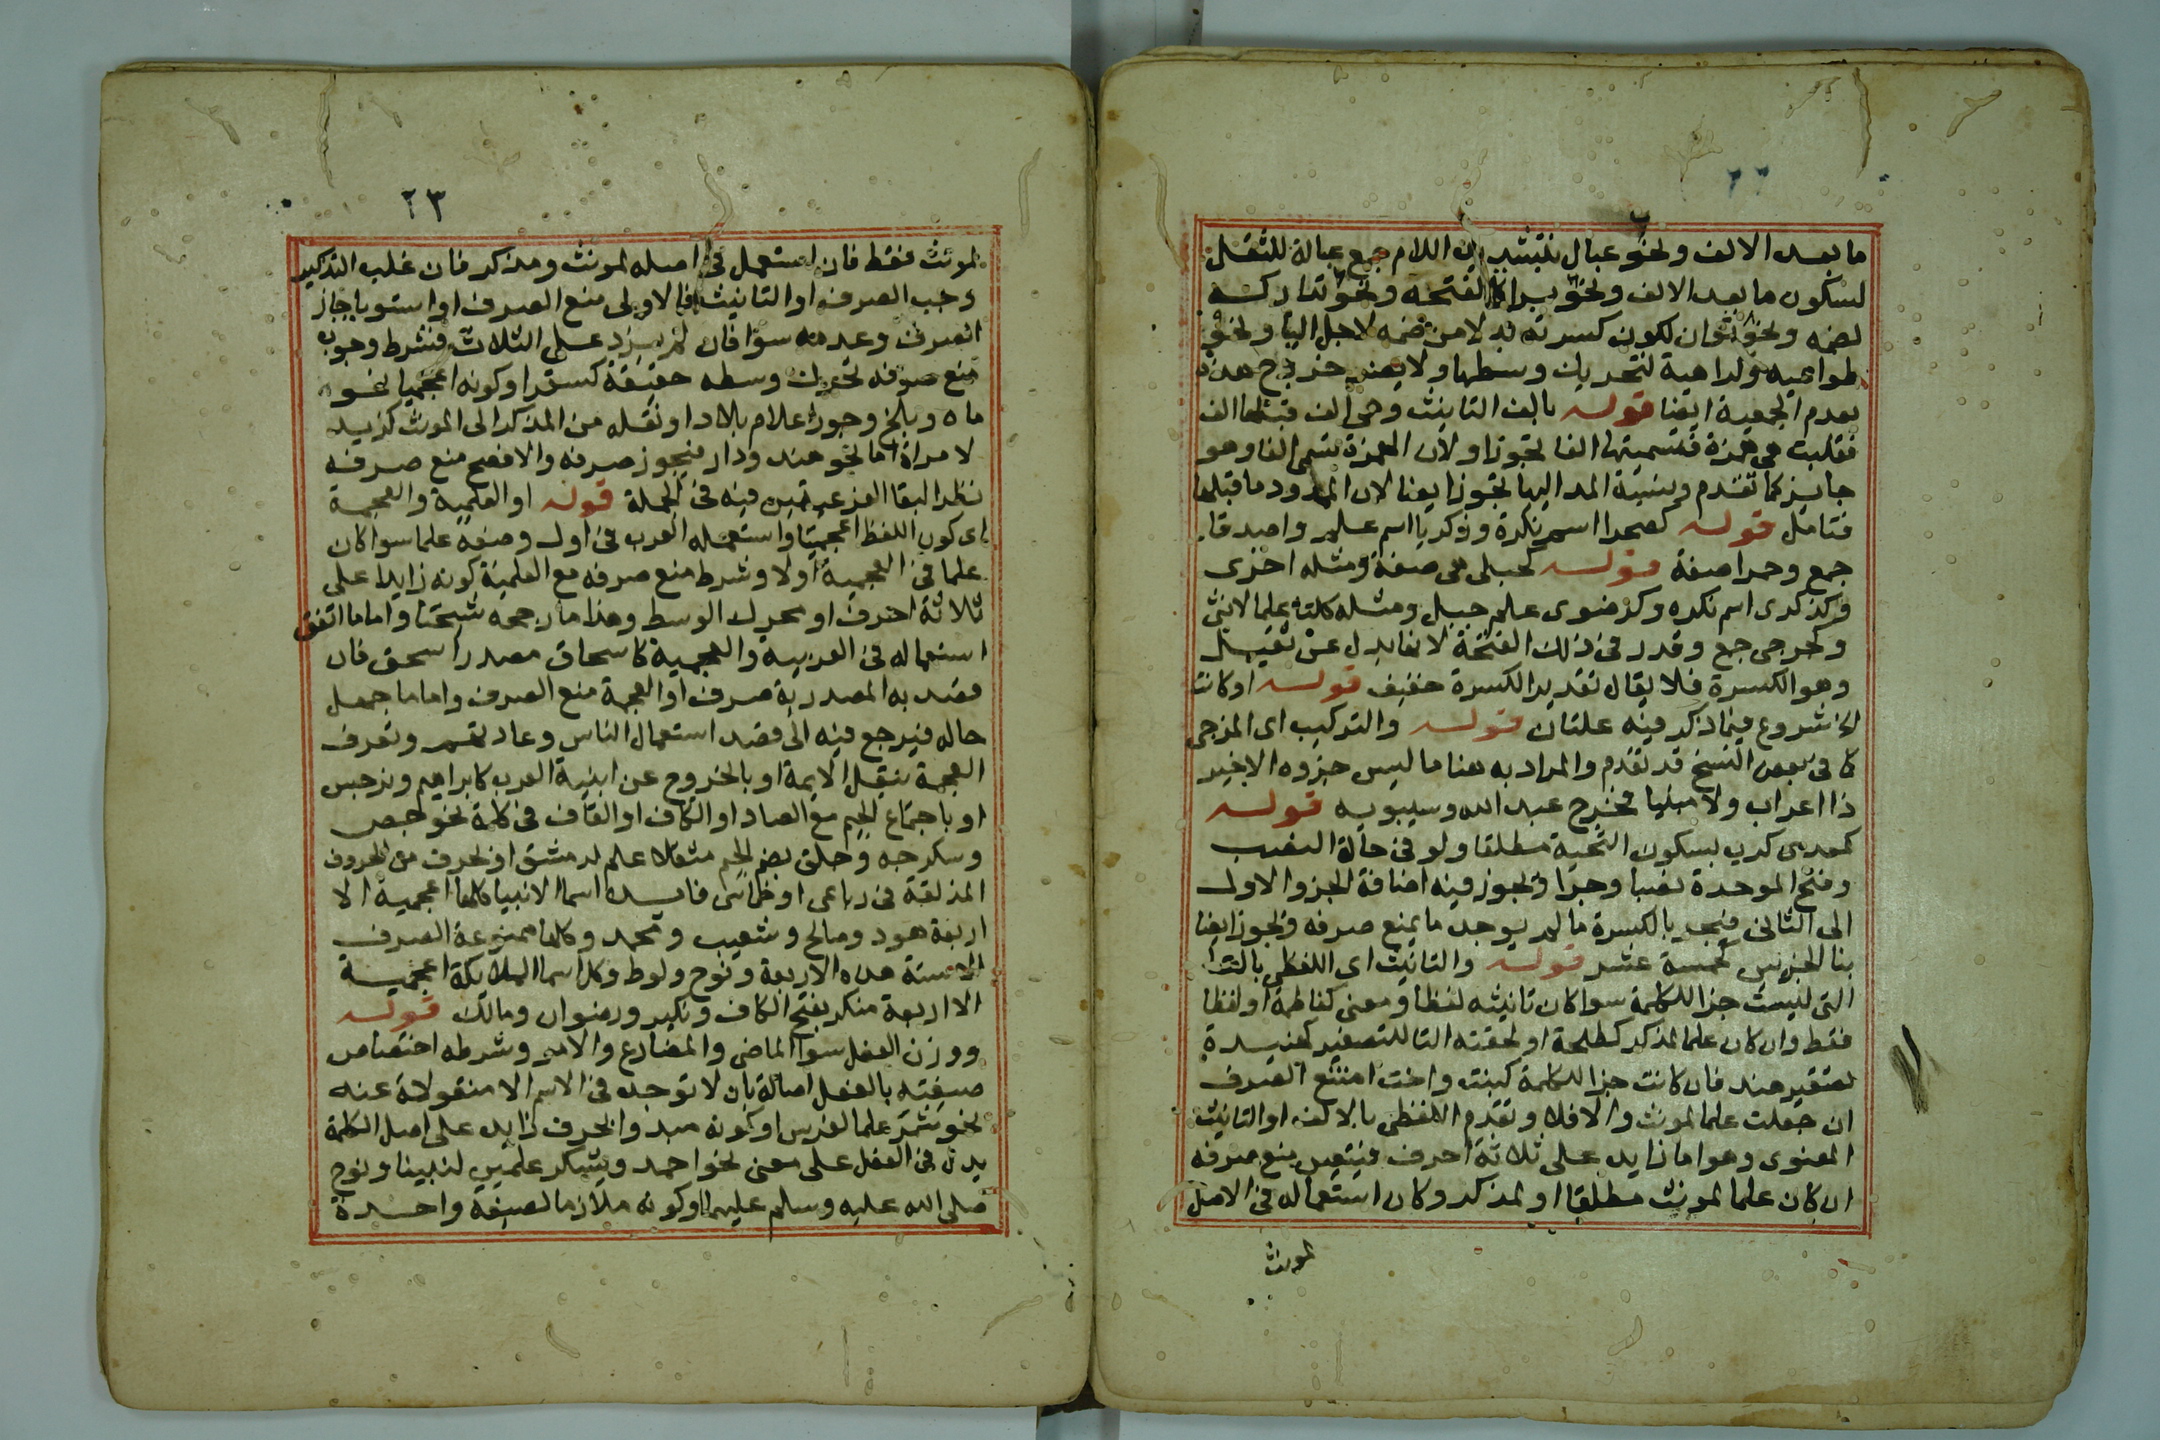 ٢٢
ما بعد الالف ونحو عبال بتشديد اللام جمع عبالة للثقل
لسكون ما بعد الالف ونحو براكا لفتحه ونحو تدارك
لضمه ونحو ثوان لكون كسرته بدلا من ضمه لاجل اليا ونحو
طواعيه وكراهية لتحريك وسطها ولا يضر خروج هذه
بعدم الجمعية ايضا قوله بالف التانيث وهي الف قبلها الف
فقلبت هي همزة فتسميتها الفا تجوزا ولان الهمزة تسمى الفا وهو
جايز كما تقدم ونسبة المد اليها تجوز ايضا لان الممدود ما قبلها
فتامل قوله كصحرا اسم نكرة وزكريا اسم علم واصدقا
جمع وحمرا صفة قوله كحبلى هي صفة ومثله اخرى
وكذكرى اسم نكره وكرضوى علم جبل ومثله كلتا علما لانثى
وكجرحى جمع وقدر في ذلك الفتحة لانها بدل عن ثقيل
وهو الكسرة فلا يقال تقدير الكسرة خفيف قوله او كانت
الخ شروع فيما ذكر فيه علتان قوله والتركيب اى المزجى
كما فى بعض النسخ قد تقدم والمراد به هنا ما ليس جزوه الاخير
ذا اعراب ولا مبنيا فخرج عبد الله وسيبويه قوله
كمعدى كرب بسكون التحية مطلقا ولو فى حالة النصب
وفتح الموحدة نصبا وجرا ويجوز فيه اضافة الجزو الاول
الى الثانى فيجر بالكسرة ما لم يوجد ما يمنع صرفه ويجوز ايضا
بنا الجزين كخمسة عشر قوله والتانيث اى اللفظى بالتا
التى ليست جزا لكلمة سوا كان تانيثه لفظا ومعنى كفاطمة او لفظا
فقط وان كان علما لمذكر كطلحة او لحقته التا للتصغير كهنيدة
تصغير هند فان كانت جزا لكلمة كبنت واخت امتنع الصرف
ان جعلت علما لمونث والا فلا وتقدم اللفظى بالالف او التانيث
المعنوى وهو اما زايد على ثلاثة احرف فيتعين منع صرفه
ان كان علما لمونث مطلقا او لمذكر وكان استعماله فى الاصل
لمونث
٢٣
لمونث فقط فان استعمل فى اصله لمونث ومذكر فان غلب التذكير
وجب الصرف او التانيث فالاولى منع الصرف او استويا جاز
الصرف وعدمه سوا فان لم يزد على الثلاث فشرط وجوب
منع صرفه تحريك وسطه حقيقة كسقر او كونه اعجميا نحو
ماه وبلخ وجور اعلام بلاد او نقله من المذكر الى المونث كزيد
لامراة اما نحو هند ودار فيجوز صرفه والافصح منع صرفه
نظرا لبقا الفرعيتين فيه فى الجملة قوله او العلمية والعجمة
اى كون اللفظ اعجميا واستعمله العرب فى اول وضعه علما سوا كان
علما فى العجمية اولا وشرط منع صرفه مع العلمية كونه زايدا على
ثلاثة احرف او محرك الوسط وهذا ما رجحه شيخنا واما ما اتفق
استعماله فى العربية والعجمية كاسحاق مصدر اسحق فان
قصد به المصدرية صرف او العجمة منع الصرف واما ما جهل
حاله فيرجع فيه الى قصد استعمال الناس وعادتهم وتعرف
العجمة بنقل الايمة او بالخروج عن ابنية العرب كابراهيم ونرجس
او باجتماع الجيم مع الصاد او الكاف او القاف فى كلمة نحو جص
وسكرجه وجلق بضم الجيم مثقلا علم لدمشق او لحرف من الحروف
المذلقة فى رباعى او خماسى فايده اسما الانبيا كلها اعجمية الا
اربعة هود وصالح وشعيب ومحمد وكلها ممنوعة الصرف
الا ستة هذه الاربعة ونوح ولوط وكل اسما الملايكة اعجمية
الا اربعة منكر بفتح الكاف ونكير ورضوان ومالك قوله
ووزن الفعل سوا الماضى والمضارع والامر وشرطه اختصاص
صيغته بالفعل اصالة بان لا توجد فى الاسم الا منقولة عنه
نحو شمر علما لفرس او كونه مبدوا بحرف زايد على اصل الكلمة
يدل فى الفعل على معنى نحو احمد ويشكر علمين لنبينا ونوح
صلى الله عليه وسلم عليهما او كونه ملازما لصيغة واحدة